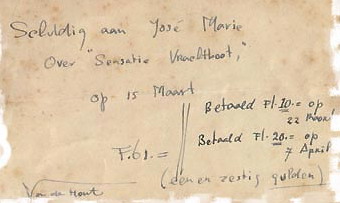 Schuldig aan José Marie
Over "Sensatie Vrachtboot,"
op 15 Maart
Betaald Fl. 10.= op
22
Betaald Fl. 20.= op
7 April
F. 61.=
(een en zestig gulden)